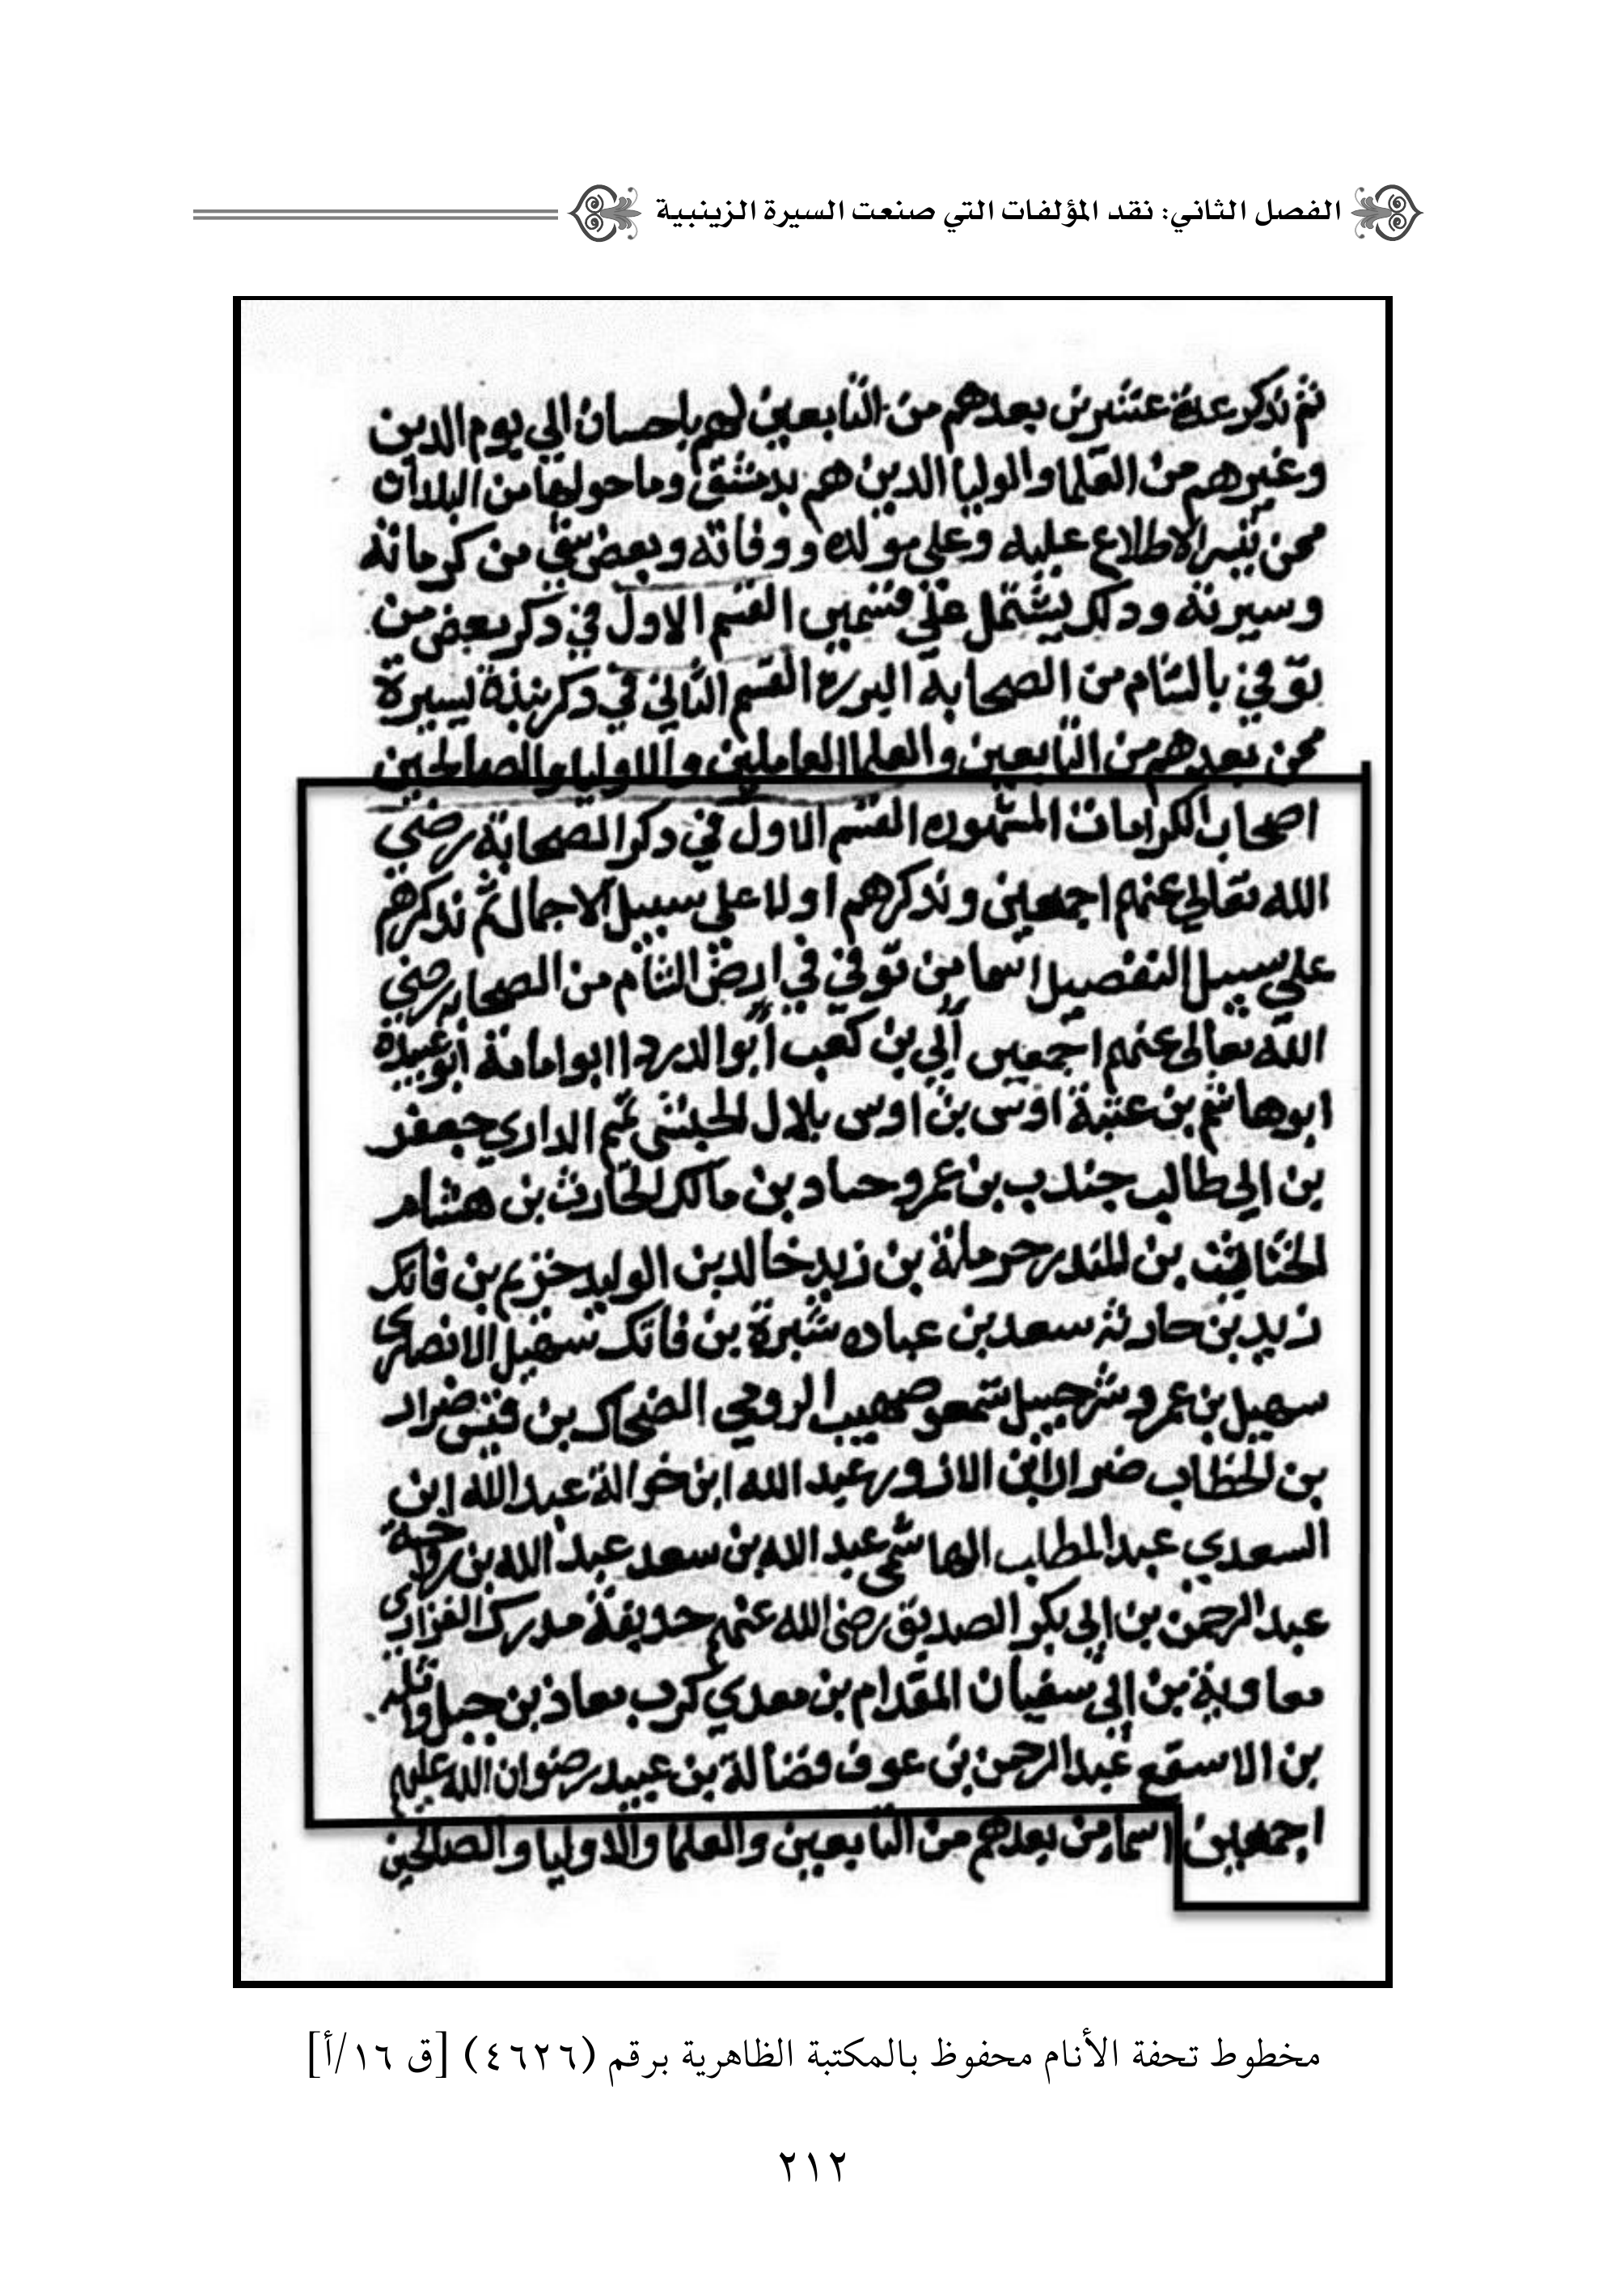 الفصل الثاني: نقد المؤلفات التي صنعت السيرة الزينبية
ثم نذكر عدة بعدهم من التابعين لهم باحسان الي يوم الدين
وغيرهم من العلما والوليا الدين هم بدمشق وما حولها من البلدان
ممن تيسر الاطلاع عليه وعلي مولده ووفاته وبعض شي من كرماته
وسيرته ودلك يشتمل علي قسمين القسم الاول في دكر بعض من
توفي بالشام من الصحابة القسم الثاني في دكر نبذة يسيرة
ممن بعدهم من التابعين والعلما العاملين والاوليا والصالحين
اصحاب الكرامات المشهوره القسم الاول في دكر الصحابة رضي
الله تعالي عنهم اجمعين ونذكرهم اولا علي سبيل الاجمال ثم نذكرهم
علي سبيل التفصيل اسما من توفي في ارض الشام من الصحابه رضي
الله تعالى عنهم اجمعين ابي بن كعب ابوا الدردا ابوا مامة ابو عبيدة
ابوهاشم بن عتبة اوس بن اوس بلال الحبشي تميم الداري جعفر
بن ابي طالب جندب بن عمرو بن مالك الحارث بن هشام
بن المندر حرملة بن زيد خالد بن الوليد خزيم بن فاتك
زيد بن حارثه سعد بن عباده سبرة بن فاتك سهيل الانصاري
سهيل بن عمرو شرحبيل صهيب الرومي الضحاك بن قيس ضرار
بن الخطاب ضرار ابن الازور عبد الله ابن خوالة عبد الله ابن
السعدي عبد المطلب الهاشمي عبد الله بن سعد عبد الله بن رواحة
عبد الرحمن بن ابي بكر الصديق رضي الله عنهم حذيفة مدرك الفزاري
معاوية بن ابي سفيان المقدام بن معدي كرب معاذ بن جبل واثله
بن الاسقع عبد الرحمن بن عوف فضالة بن عبيد رضوان الله عليهم
اجمعين اسما من بعدهم من التابعين والعلما والاوليا والصالحين
مخطوط تحفة الأنام محفوظ بالمكتبة الظاهرية برقم (٤٦٢٦) [ق ١٦/أ]
٢١٢